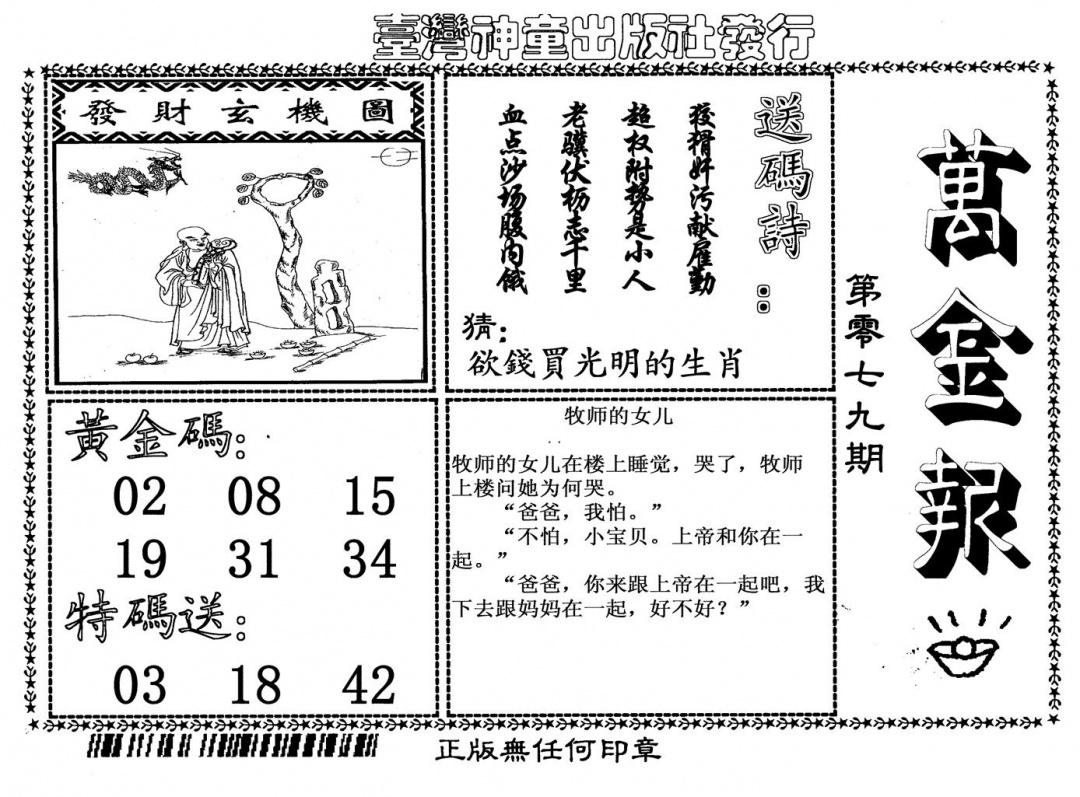 臺灣神童出版社發行
萬金報
第零七九期
送碼詩：
狡猾奸污献雇勤
超权附势是小人
老骥伏枥志千里
血点沙场腹内饿
猜：
欲錢買光明的生肖
發財玄機圖
黃金碼：
02 08 15
19 31 34
特碼送：
03 18 42
牧师的女儿
牧师的女儿在楼上睡觉，哭了，牧师
上楼问她为何哭。
“爸爸，我怕。”
“不怕，小宝贝。上帝和你在一
起。”
“爸爸，你来跟上帝在一起吧，我
下去跟妈妈在一起，好不好？”
正版無任何印章